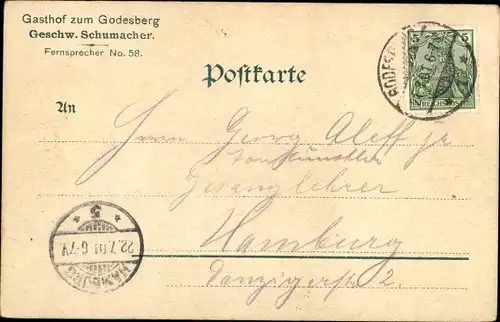 Gasthof zum Godesberg
Geschw. Schumacher.
Fernsprecher No. 58.
Postkarte
An
Herrn Georg Aleff jr
Tonkünstler
Gesanglehrer
Hamburg
Danzigerstr 2.
5 5
REICHSPOST
GODESB
01.6-7
HAMBURG
22.7.01.6-7V.
5